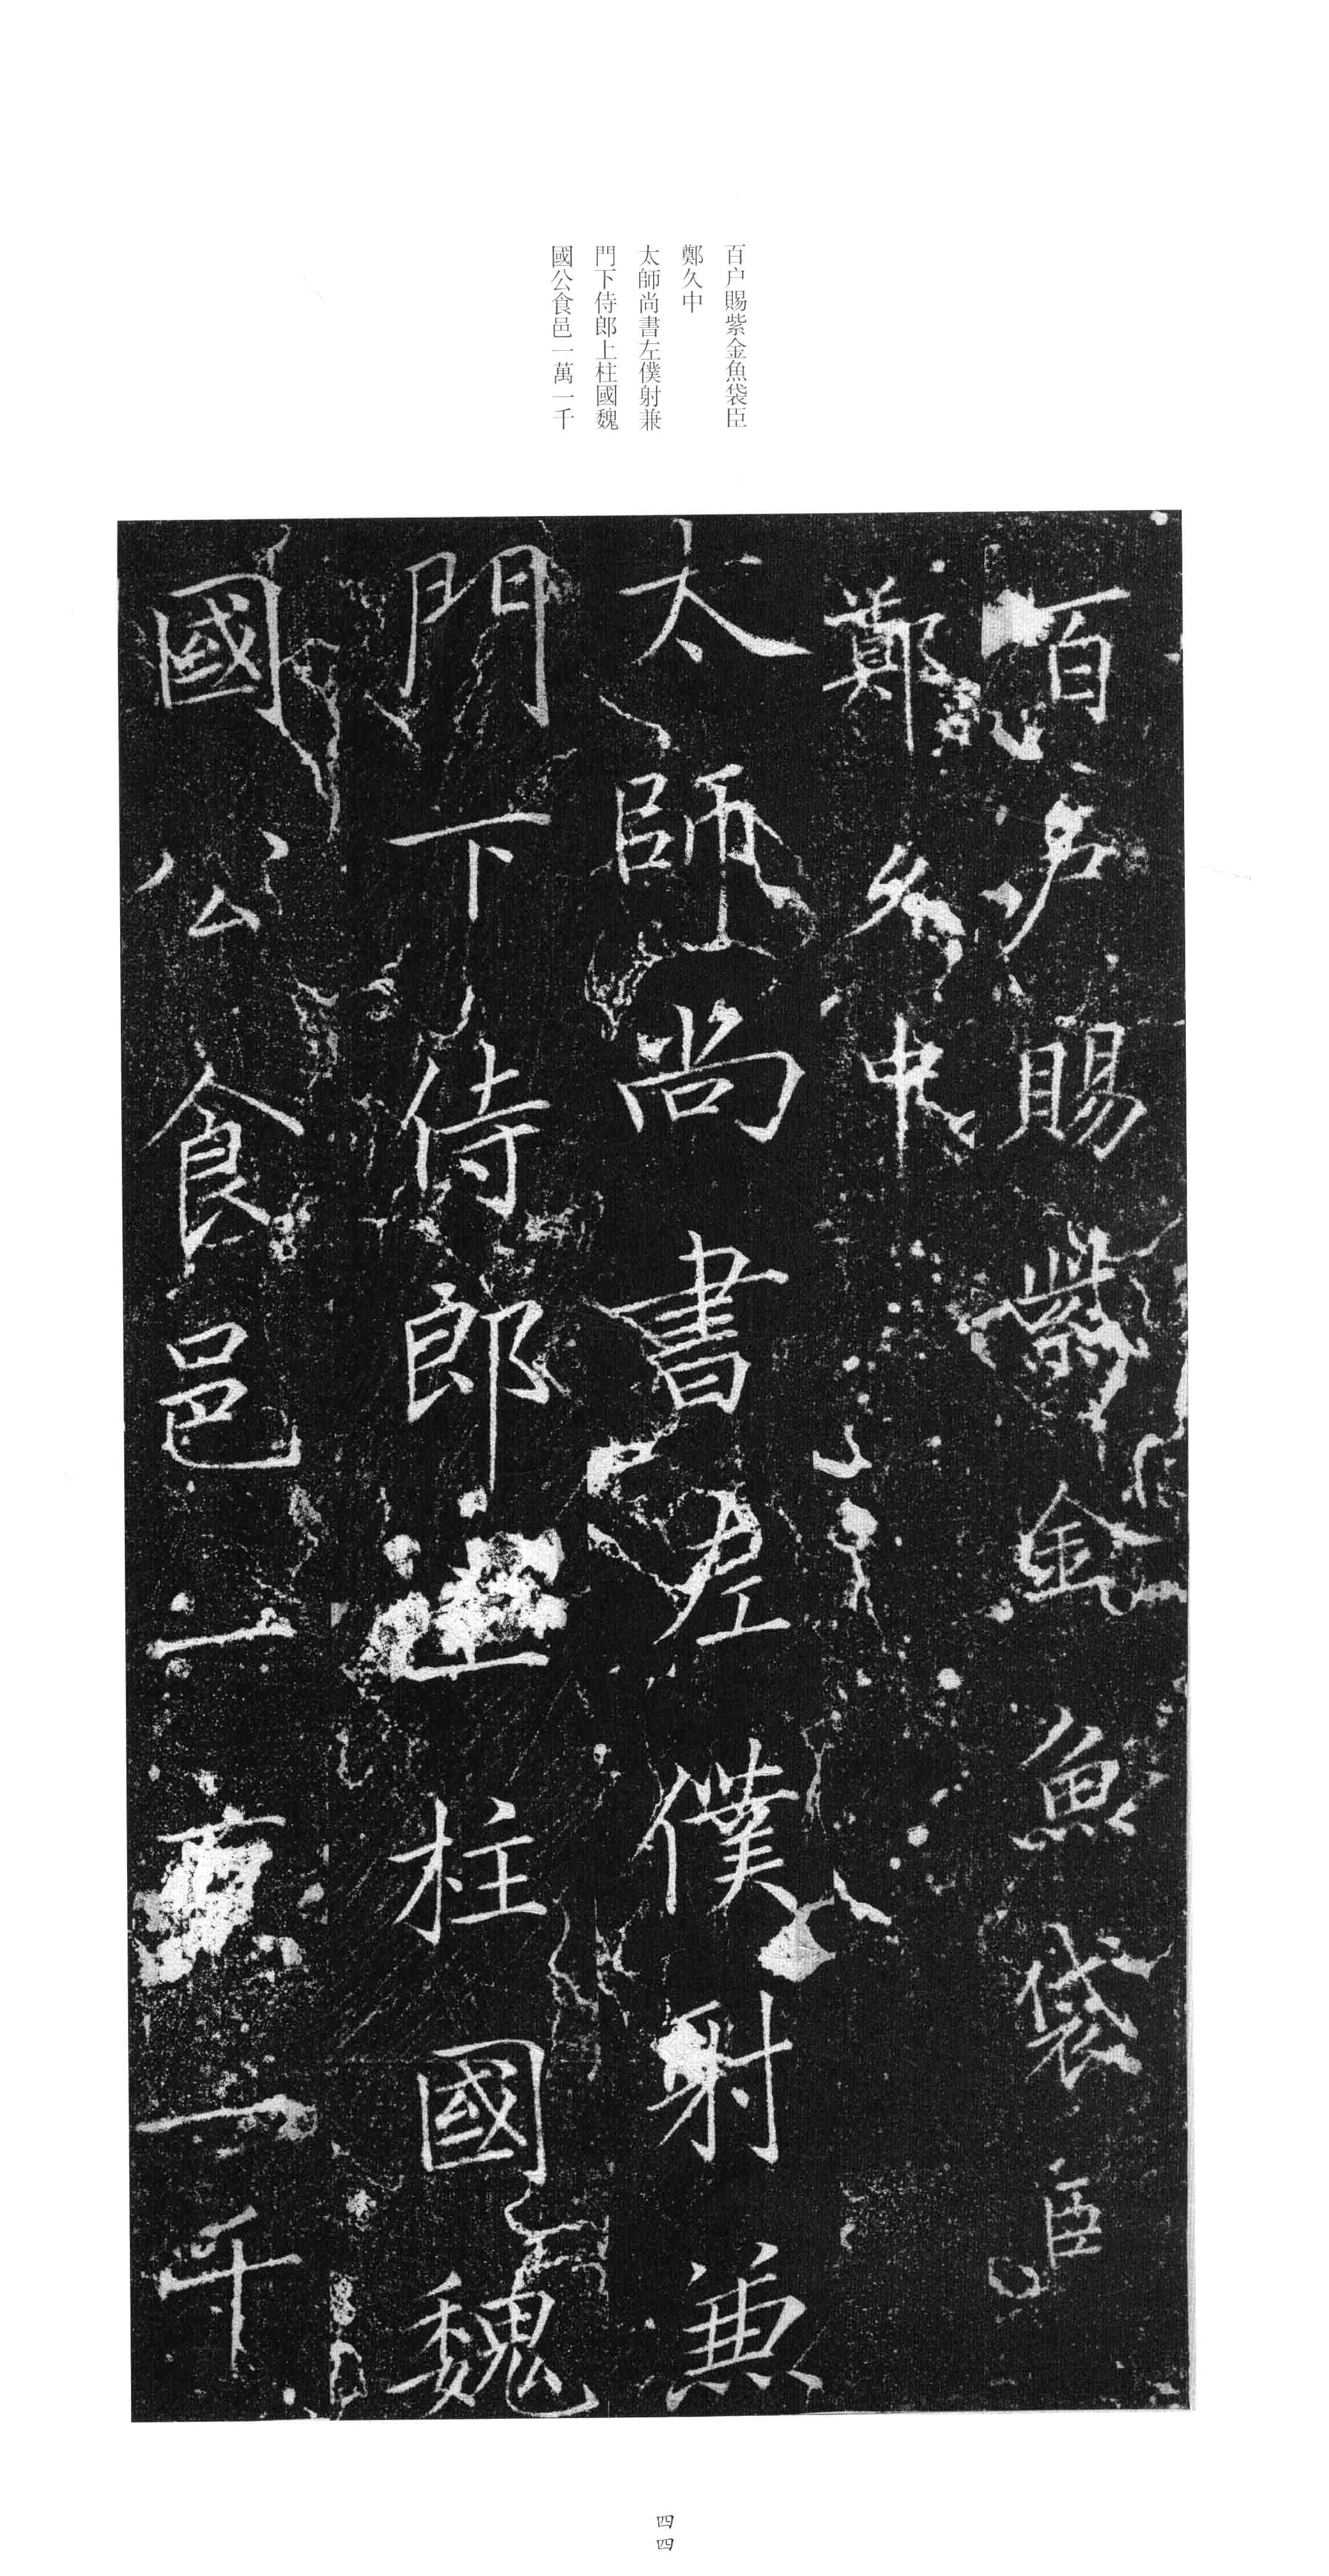 百户賜紫金魚袋臣
鄭久中
太師尚書左僕射兼
門下侍郎上柱國魏
國公食邑一萬一千
百户賜紫金魚袋臣
鄭久中
太師尚書左僕射兼
門下侍郎上柱國魏
國公食邑一萬一千
四四